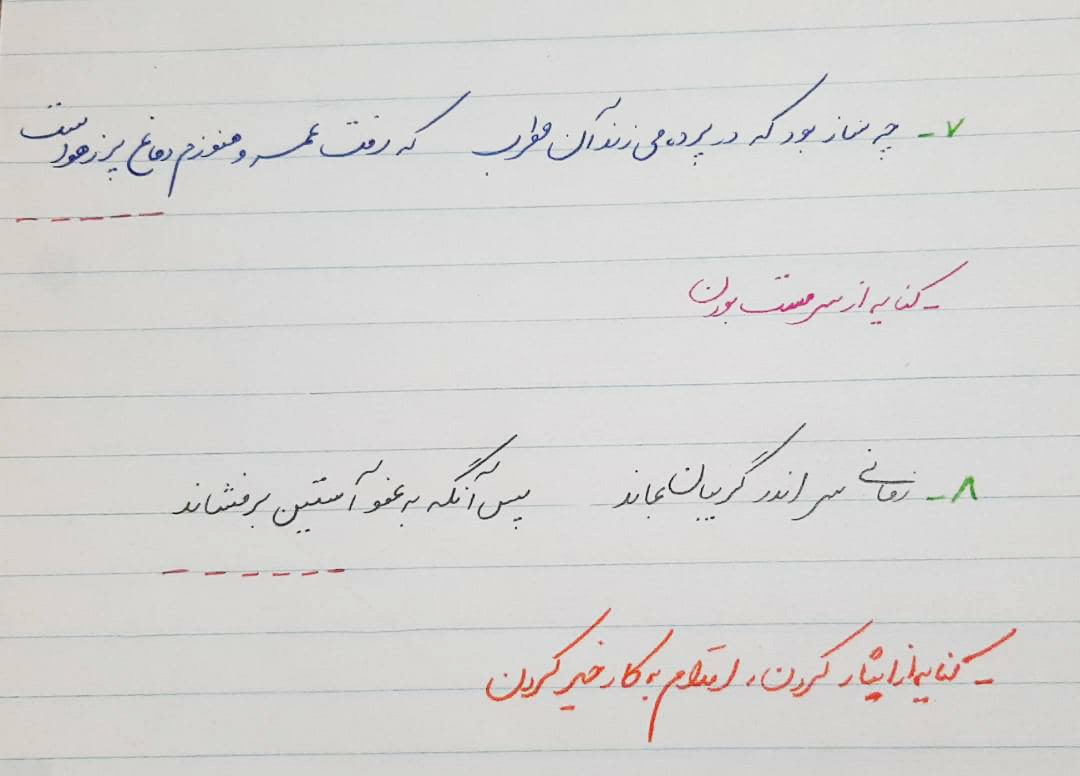 ۷- چه ساز بود که در پرده می زند آن مطرب که رفت عمر و هنوزم دماغ پر ز هواست
- کنایه از سرمست بودن
۸- زمانی سر اندر گریبان بماند پس آنگه به عفو آستین برفشاند
- کنایه از ایثار کردن، اقدام به کار خیر کردن